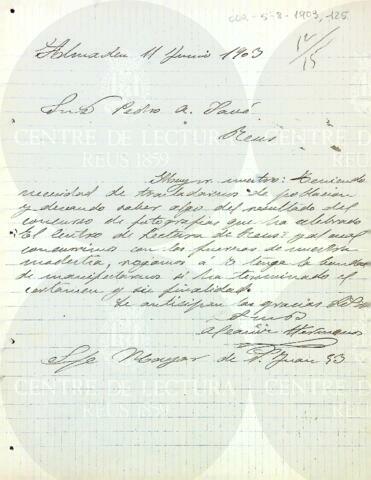 COR-5-8-1903,-125
12/15
Almaden 11 Junio 1903
Sr. D. Pedro A. Savé
Reus
Muy sr. nuestro: Teniendo
necesidad de trasladarnos de poblacion
y deseando saber algo del resultado del
concurso de fotografias que ha celebrado
El Centro de Lectura de Reus y al cual
concurrimos con las fuerzas de nuestra
modestia, rogamos á V. tenga la bondad
de manifestarnos si ha terminado el
certámen y su finalidad.
Le anticipan las gracias
Alcañiz Hermanos
S/c Mayor de S. Juan 53
CENTRE DE LECTURA
REUS 1859
CENTRE DE LECTURA
REUS 1859